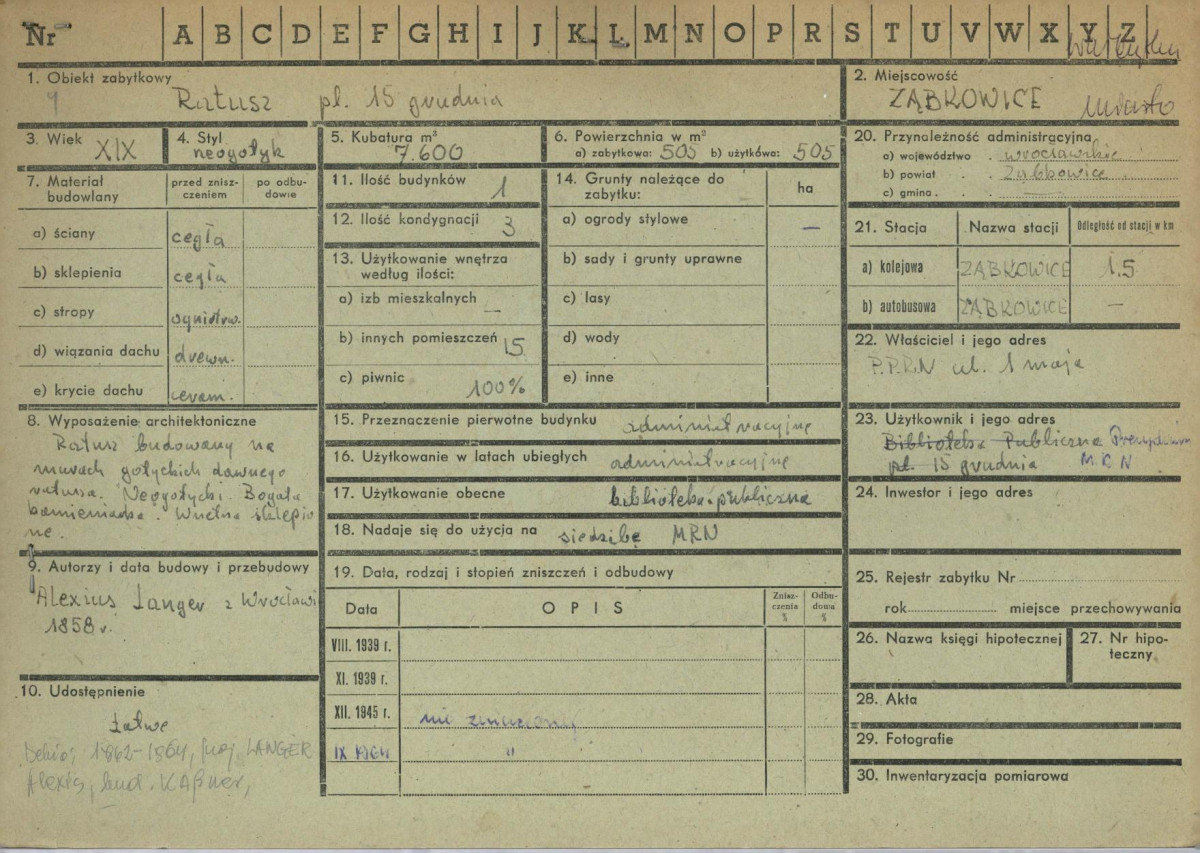 Nr A B C D E F G H I J K L M N O P R S T U V W X Y Z
1. Obiekt zabytkowy
Ratusz pl. 15 grudnia
2. Miejscowość
ZĄBKOWICE miasto
3. Wiek XIX
4. Styl
neogotyk
5. Kubatura m³
7.600
6. Powierzchnia w m²
a) zabytkowa: 505 b) użytkowa: 505
7. Materiał budowlany
przed zniszczeniem
po odbudowie
a) ściany cegła
b) sklepienia cegła
c) stropy ogniotrw.
d) wiązania dachu drewn.
e) krycie dachu ceram.
8. Wyposażenie architektoniczne
Ratusz budowany na
murach gotyckich dawnego
ratusza. Neogotycki. Bogata
kamieniarka. Wnętrza sklepio
ne.
9. Autorzy i data budowy i przebudowy
Alexius Langer z Wrocławi
1858 r.
10. Udostępnienie
Łatwe
Dehio: 1862-1864, proj. LANGER
Alexis, bud. KAßner,
11. Ilość budynków 1
12. Ilość kondygnacji 3
13. Użytkowanie wnętrza
według ilości:
a) izb mieszkalnych —
b) innych pomieszczeń 15
c) piwnic 100%
14. Grunty należące do
zabytku: ha
a) ogrody stylowe —
b) sady i grunty uprawne
c) lasy
d) wody
e) inne
15. Przeznaczenie pierwotne budynku administracyjne
16. Użytkowanie w latach ubiegłych administracyjne
17. Użytkowanie obecne biblioteka publiczna
18. Nadaje się do użycia na siedzibę MRN
19. Data, rodzaj i stopień zniszczeń i odbudowy
Data OPIS Zniszczenia % Odbudowa %
VIII. 1939 r.
XI. 1939 r.
XII. 1945 r. nie zniszczony
IX 1964 "
20. Przynależność administracyjna
a) województwo . wrocławskie
b) powiat . . Ząbkowice
c) gmina . . —
21. Stacja Nazwa stacji Odległość od stacji w km
a) kolejowa ZĄBKOWICE 1.5
b) autobusowa ZĄBKOWICE —
22. Właściciel i jego adres
P.P.R.N ul. 1 maja
23. Użytkownik i jego adres
Biblioteka Publiczna Prezydium
pl. 15 grudnia M.R.N
24. Inwestor i jego adres
25. Rejestr zabytku Nr
rok miejsce przechowywania
26. Nazwa księgi hipotecznej
27. Nr hipoteczny
28. Akta
29. Fotografie
30. Inwentaryzacja pomiarowa